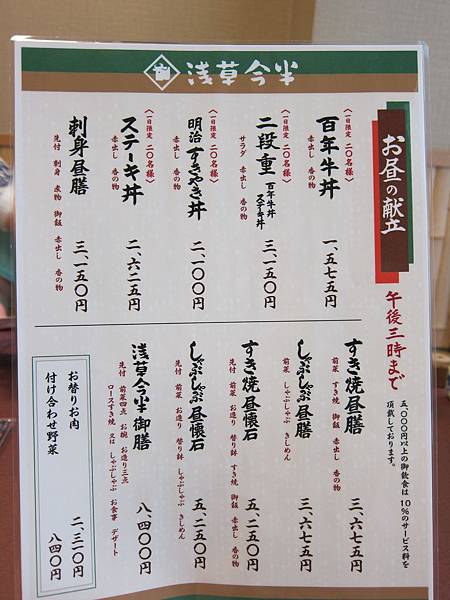 浅草今半
お昼の献立
午後三時まで
五、〇〇〇円以上の御飲食は10%のサービス料を
頂戴しております。
〈一日限定 二〇名様〉
百年牛丼
赤出し 香の物
一、五七五円
〈一日限定 二〇名様〉
二段重 百年牛丼 ステーキ丼
サラダ 赤出し 香の物
三、一五〇円
〈一日限定 二〇名様〉
明治すきやき丼
赤出し 香の物
二、一〇〇円
〈一日限定 二〇名様〉
ステーキ丼
赤出し 香の物
二、六二五円
刺身昼膳
先付 刺身 煮物 御飯 赤出し 香の物
三、一五〇円
すき焼昼膳
前菜 すき焼 御飯 赤出し 香の物
三、六七五円
しゃぶしゃぶ昼膳
前菜 しゃぶしゃぶ きしめん
三、六七五円
すき焼昼懐石
先付 前菜 お造り 替り鉢 すき焼 御飯 赤出し 香の物
五、二五〇円
しゃぶしゃぶ昼懐石
先付 前菜 お造り 替り鉢 しゃぶしゃぶ きしめん
五、二五〇円
浅草今半御膳
先付 前菜四点 お椀 お造り三点
ロースすき焼 又は しゃぶしゃぶ お食事 デザート
八、四〇〇円
お替りお肉
二、三一〇円
付け合わせ野菜
八四〇円